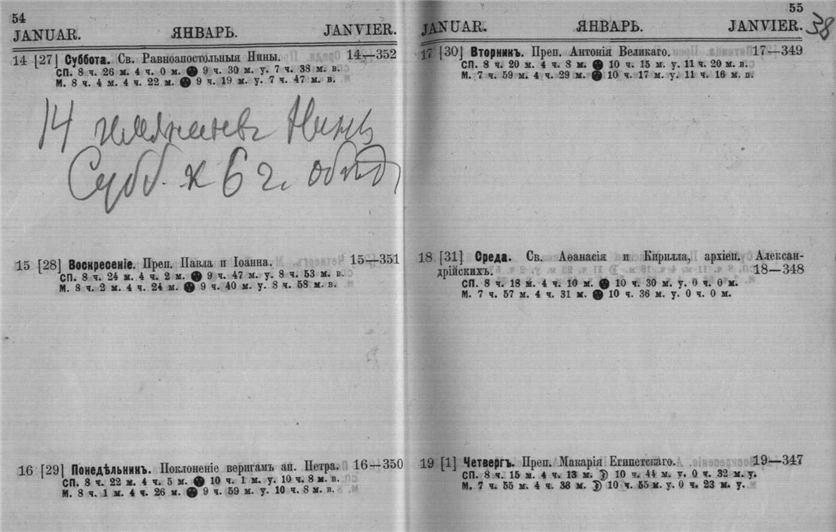 54
JANUAR. ЯНВАРЬ. JANVIER.
14 [27] Суббота. Св. Равноапостольныя Нины. 14—352
СП. 8 ч. 26 м. 4 ч. 0 м. 9 ч. 30 м. у. 7 ч. 38 м. в.
М. 8 ч. 4 м. 4 ч. 22 м. 9 ч. 19 м. у. 7 ч. 47 м. в.
14 имянины Нины
Субб. к 6 ч. обед
15 [28] Воскресеніе. Преп. Павла и Іоанна. 15—351
СП. 8 ч. 24 м. 4 ч. 2 м. 9 ч. 47 м. у. 8 ч. 53 м. в.
М. 8 ч. 2 м. 4 ч. 24 м. 9 ч. 40 м. у. 8 ч. 58 м. в.
16 [29] Понедѣльникъ. Поклоненіе веригамъ ап. Петра. 16—350
СП. 8 ч. 22 м. 4 ч. 5 м. 10 ч. 1 м. у. 10 ч. 8 м. в.
М. 8 ч. 1 м. 4 ч. 26 м. 9 ч. 59 м. у. 10 ч. 8 м. в.
55
38
JANUAR. ЯНВАРЬ. JANVIER.
17 [30] Вторникъ. Преп. Антонія Великаго. 17—349
СП. 8 ч. 20 м. 4 ч. 8 м. 10 ч. 15 м. у. 11 ч. 20 м. в.
М. 7 ч. 59 м. 4 ч. 29 м. 10 ч. 17 м. у. 11 ч. 16 м. в.
18 [31] Среда. Св. Аѳанасія и Кирилла, архіеп. Алексан-
дрійскихъ. 18—348
СП. 8 ч. 18 м. 4 ч. 10 м. 10 ч. 30 м. у. 0 ч. 0 м.
М. 7 ч. 57 м. 4 ч. 31 м. 10 ч. 36 м. у. 0 ч. 0 м.
19 [1] Четвергъ. Преп. Макарія Египетскаго. 19—347
СП. 8 ч. 15 м. 4 ч. 13 м. 10 ч. 44 м. у. 0 ч. 32 м. у.
М. 7 ч. 55 м. 4 ч. 33 м. 10 ч. 55 м. у. 0 ч. 23 м. у.